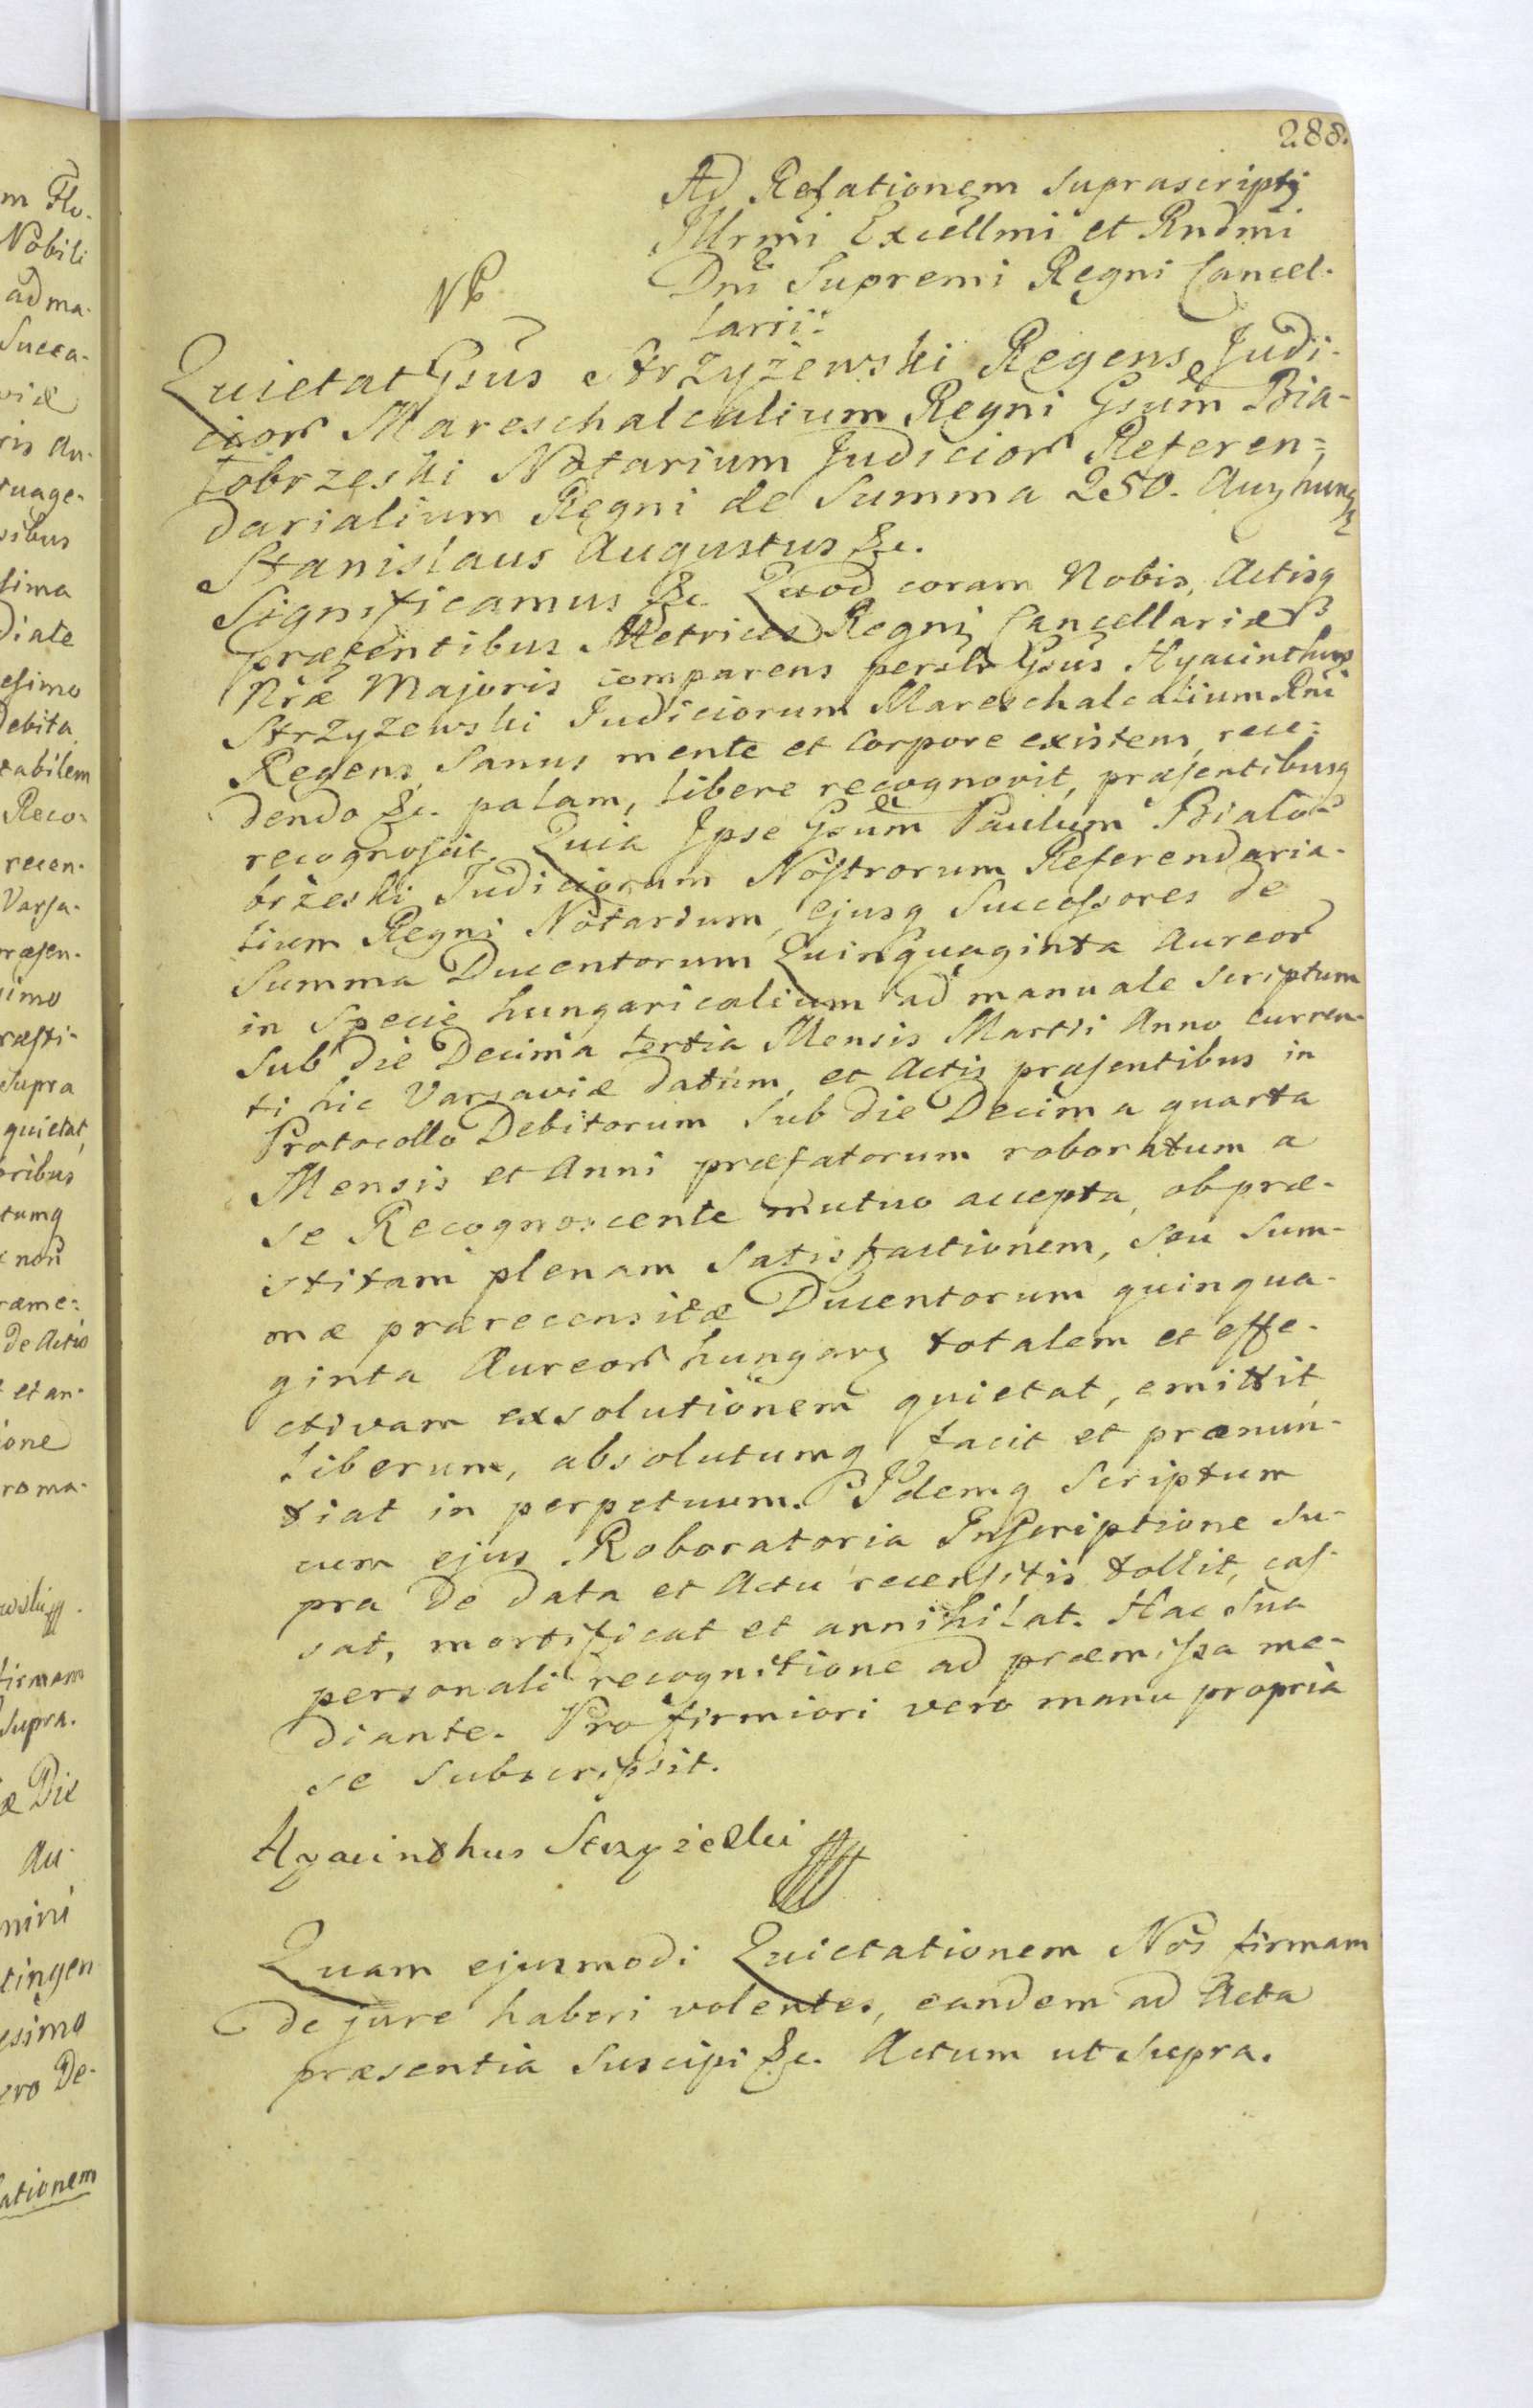 288.
Ad Relationem suprascripti
Illrmi Excellmi et Rndmi
Dni Supremi Regni Cancel-
larii.
NB
Quietat Gsus Strzyżewski Regens Judi-
cior Mareschalcalium Regni Gsum Bia-
łobrzeski Notarium Judicior Referen-
darialium Regni de Summa 250. Aur hung
Stanislaus Augustus &c.
Significamus &c. Quod coram Nobis, Actisq
præsentibus Metrices Regni Cancellariæ
Nræ Majoris comparens persltr Gsus Hyacinthus
Strzyżewski Judiciorum Mareschalcalium Rni
Regens, Sanus mente et Corpore existens, rece-
dendo &c. palam, libere recognovit, præsentibusq
recognoscit. Quia Ipse Gsum Paulum Biało-
brzeski Judiciorum Nostrorum Referendaria-
lium Regni Notarium, ejusq Successores de
Summa Ducentorum Quinquaginta Aureor
in Specie hungaricalium ad manuale Scriptum
Sub die Decima tertia Mensis Martii Anno curren-
ti hic Varsaviæ datum, et Actis præsentibus in
Protocollo Debitorum Sub die Decima quarta
Mensis et Anni præfatorum roboratum a
se Recognoscente mutuo accepta, ob præ-
stitam plenam Satisfactionem, seu Sum-
mæ præreccensitæ Ducentorum quinqua-
ginta Aureor hungar totalem et effe-
ctivam exsolutionem quietat, emittit
liberum, absolutumq facit et prænun-
tiat in perpetuum. Idemq Scriptum
cum ejus Roboratoria Inscriptione Su-
pra de data et Actu recensitis tollit, cas-
sat, mortificat et annihilat. Hac Sua
personali recognitione ad præmissa me-
diante. Pro firmiori vero manu propria
se Subscripsit.
Hyacinthus Strzyżeski
Quam ejusmodi Quietationem Nos firmam
de jure haberi volentes, eandem ad Acta
præsentia Suscipi &c. Actum ut Supra.